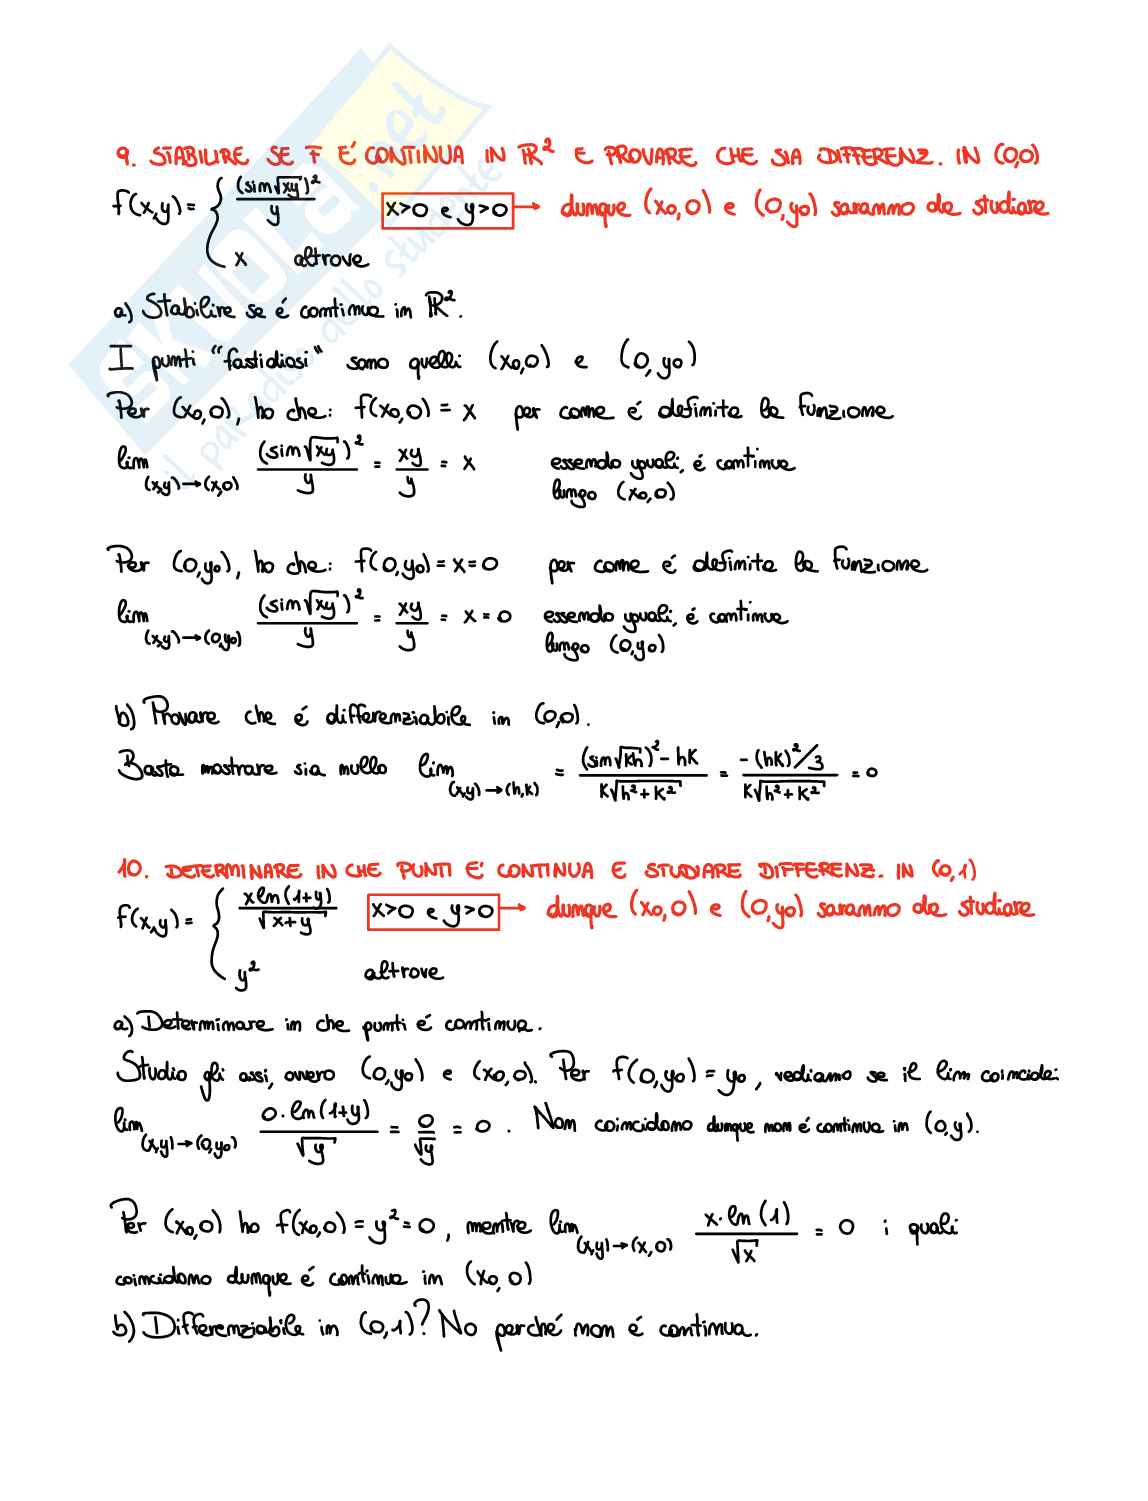 9. STABILIRE SE F É CONTINUA IN ℝ² E PROVARE CHE SIA DIFFERENZ. IN (0,0)
f(x,y) = { (sin√xy)² / y    x>0 e y>0 → dunque (x₀,0) e (0,y₀) saranno da studiare
x    altrove
a) Stabilire se é continua in ℝ².
I punti "fastidiosi" sono quelli (x₀,0) e (0,y₀)
Per (x₀,0), ho che: f(x₀,0) = x per come é definita la funzione
lim (x,y)→(x,0) (sin√xy)² / y = xy / y = x essendo uguali, é continua
lungo (x₀,0)
Per (0,y₀), ho che: f(0,y₀) = x = 0 per come é definita la funzione
lim (x,y)→(0,y₀) (sin√xy)² / y = xy / y = x = 0 essendo uguali, é continua
lungo (0,y₀)
b) Provare che é differenziabile in (0,0).
Basta mostrare sia nullo lim (x,y)→(h,k) = (sin√kh)² - hk / k√h²+k² = -(hk)²/3 / k√h²+k² = 0
10. DETERMINARE IN CHE PUNTI É CONTINUA E STUDIARE DIFFERENZ. IN (0,1)
f(x,y) = { x ln(1+y) / √x+y    x>0 e y>0 → dunque (x₀,0) e (0,y₀) saranno da studiare
y²    altrove
a) Determinare in che punti é continua.
Studio gli assi, ovvero (0,y₀) e (x₀,0). Per f(0,y₀) = y₀, vediamo se il lim coincide:
lim (x,y)→(0,y₀) 0·ln(1+y) / √y = 0 / √y = 0. Non coincidono dunque non é continua in (0,y).
Per (x₀,0) ho f(x₀,0) = y² = 0, mentre lim (x,y)→(x,0) x·ln(1) / √x = 0 i quali
coincidono dunque é continua in (x₀,0)
b) Differenziabile in (0,1)? No perché non é continua.
SKUOLA.net
il paradiso dello studente